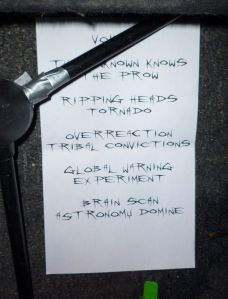 KNOWS
THE PROW
RIPPING HEADS
TORNADO
OVERREACTION
TRIBAL CONVICTIONS
GLOBAL WARNING
EXPERIMENT
BRAIN SCAN
ASTRONOMY DOMINE